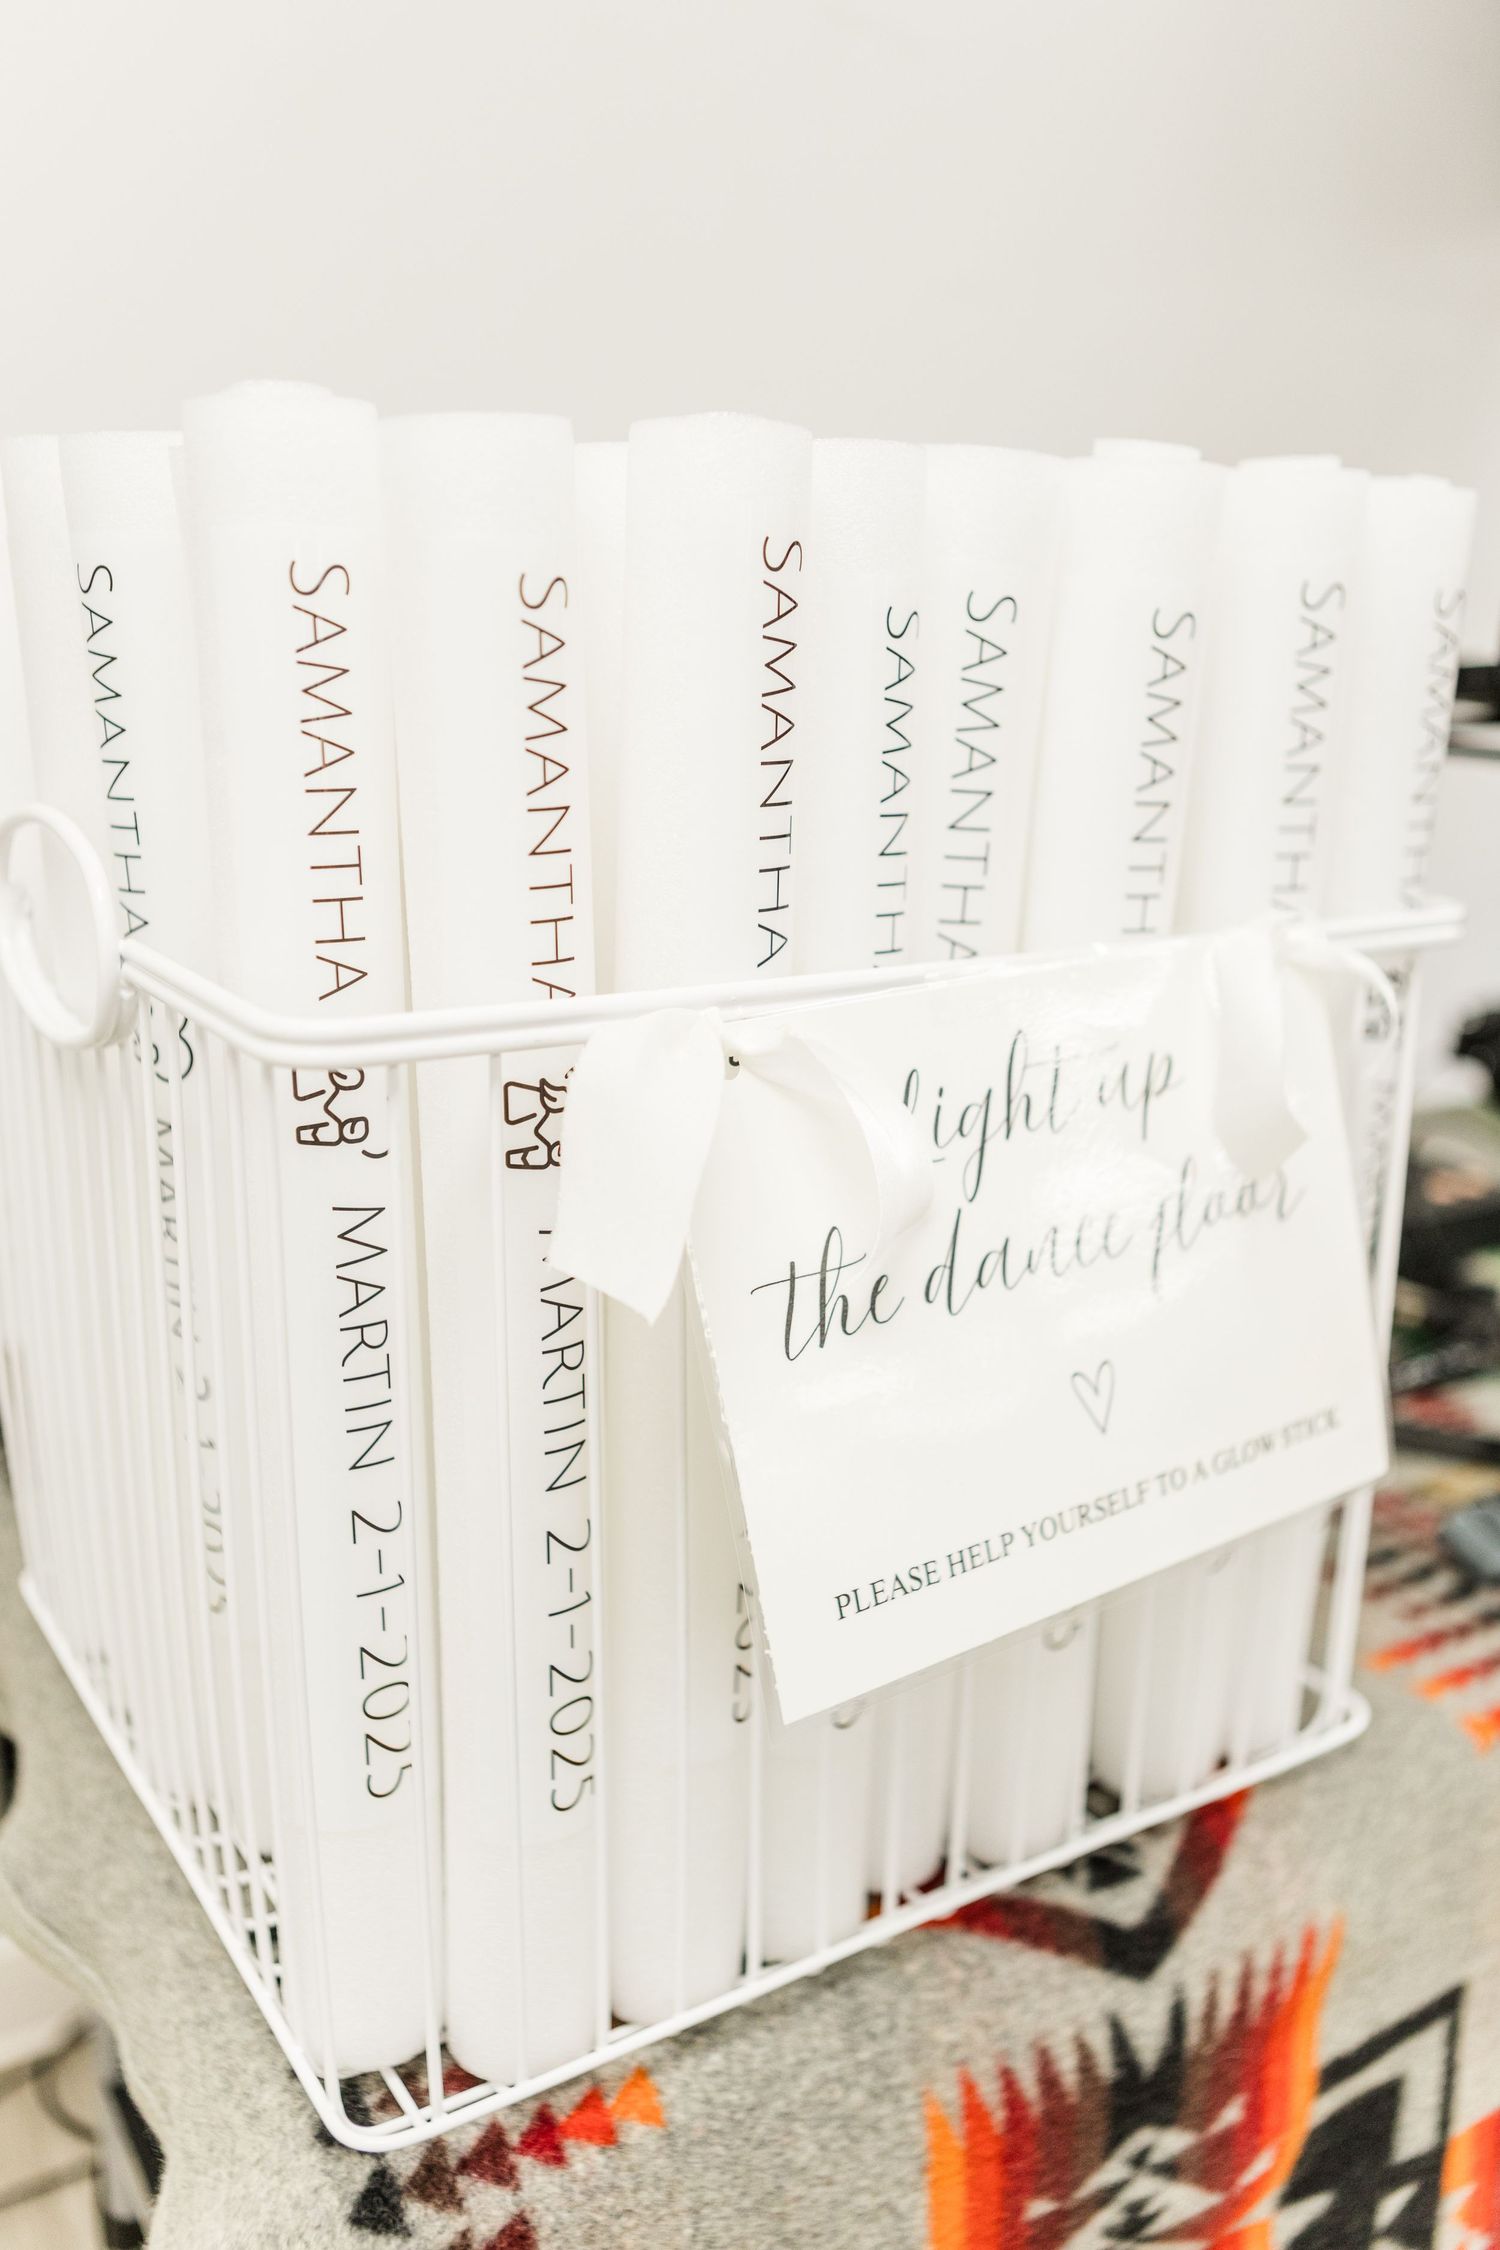 SAMANTHA
SAMANTHA
, MARTIN 2-1-2025
SAMANTHA
MARTIN 2-1-2025
SAMANTHA
2025
SAMANTHA
SAMANTHA
SAMANTH
SAMANTHA
SAMANTHA
Light up
the dance floor
PLEASE HELP YOURSELF TO A GLOW STICK